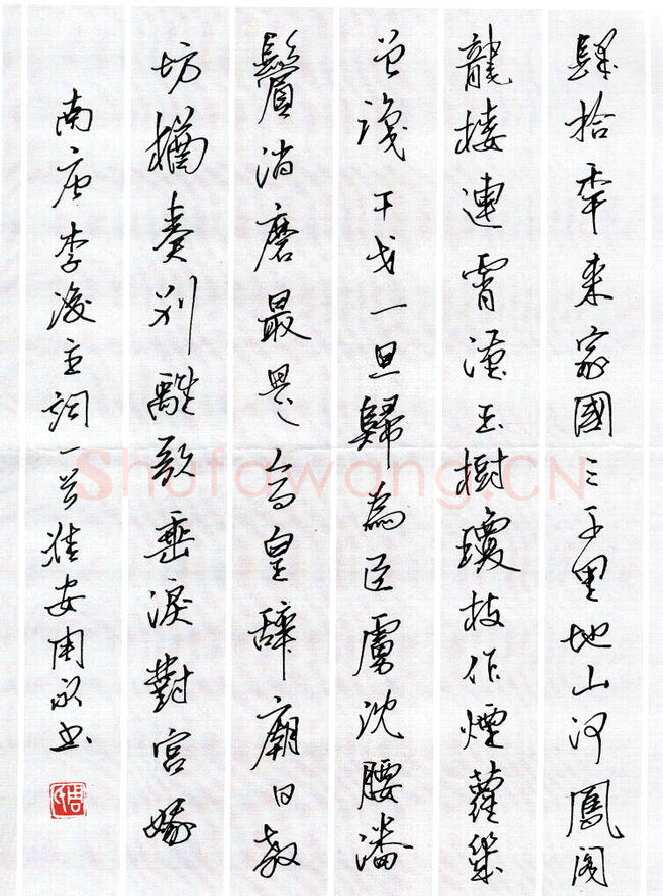 肆拾年来家國三千里地山河鳳閣
龍樓連霄漢玉樹瓊枝作煙蘿幾
曾識干戈一旦歸為臣虜沈腰潘
鬢消磨最是倉皇辭廟日教
坊猶奏別離歌垂淚對宮娥
南唐李後主詞一首淮安周永书
Shufawang.CN